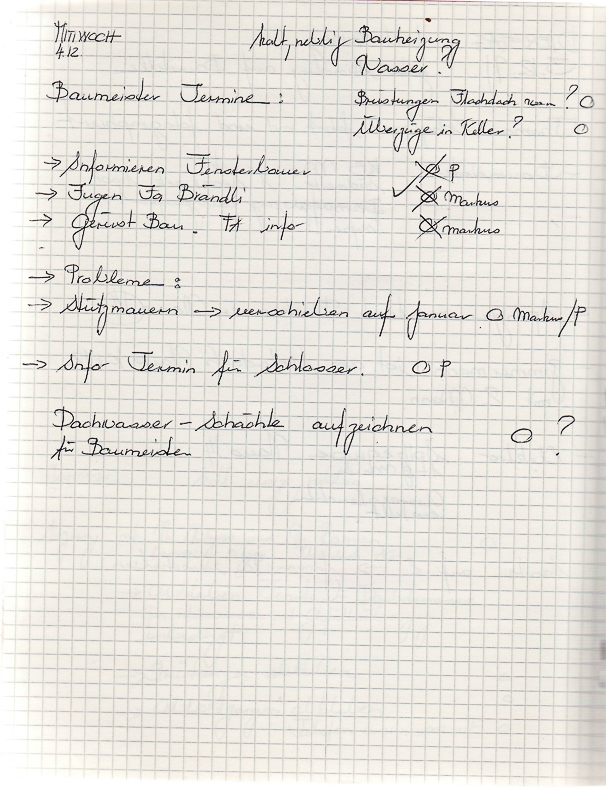 MITTWOCH
4.12.
kalt, neblig Bauheizung
Wasser?
Baumeister Termine :
Brüstungen Flachdach wann ? O
Überzüge in Keller? O
→ Informieren Fensterbauer ⊗ P
→ Fugen Fa Brändli ✓ ⊗ Markus
→ Gerüst Bau. info ⊗ markus
→ Probleme :
→ Stützmauern → verschieben auf Januar O Markus/P
→ Info Termin für Schlosser. O P
Dachwasser - Schächte aufzeichnen O ?
für Baumeister